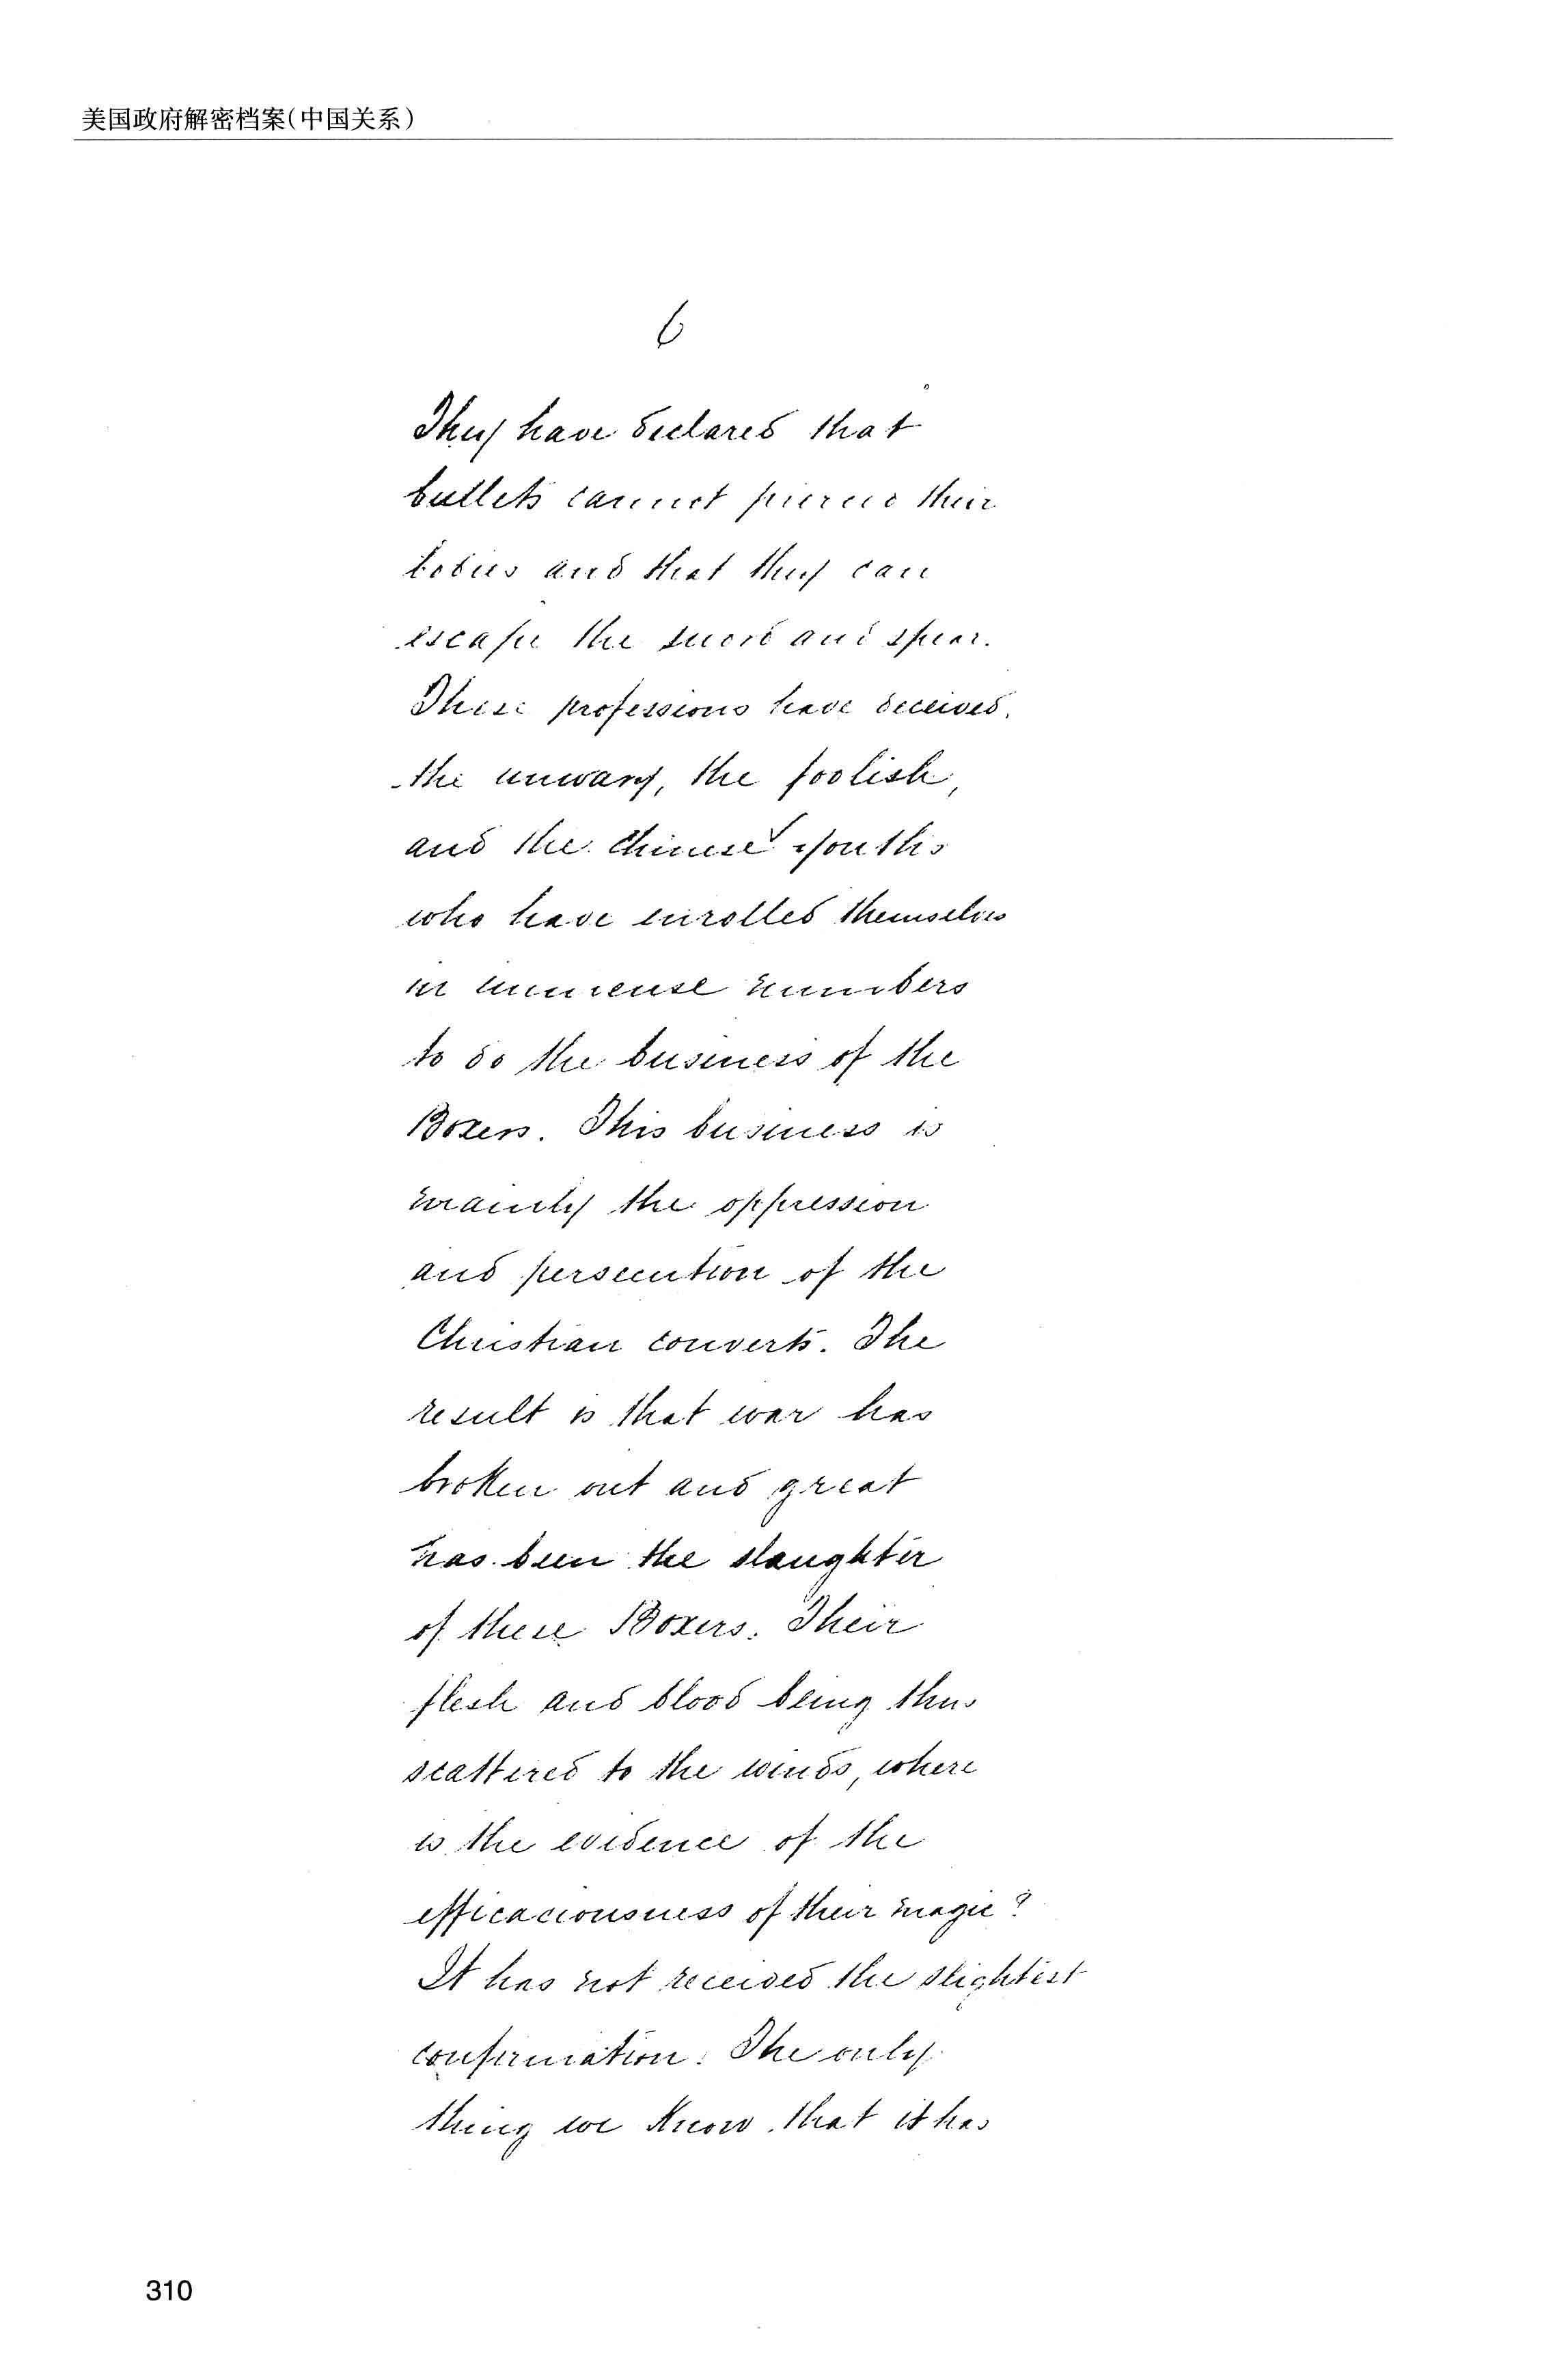 美国政府解密档案(中国关系)
6
They have declared that
bullets cannot pierce their
bodies and that they can
escape the sword and spear.
These professions have deceived
the unwary, the foolish,
and the Chinese youths
who have enrolled themselves
in immense numbers
to do the business of the
Boxers. This business is
mainly the oppression
and persecution of the
Christian converts. The
result is that war has
broken out and great
has been the slaughter
of these Boxers. Their
flesh and blood being thus
scattered to the winds, where
is the evidence of the
efficaciousness of their magic?
It has not received the slightest
confirmation. The only
thing we know that it has
310